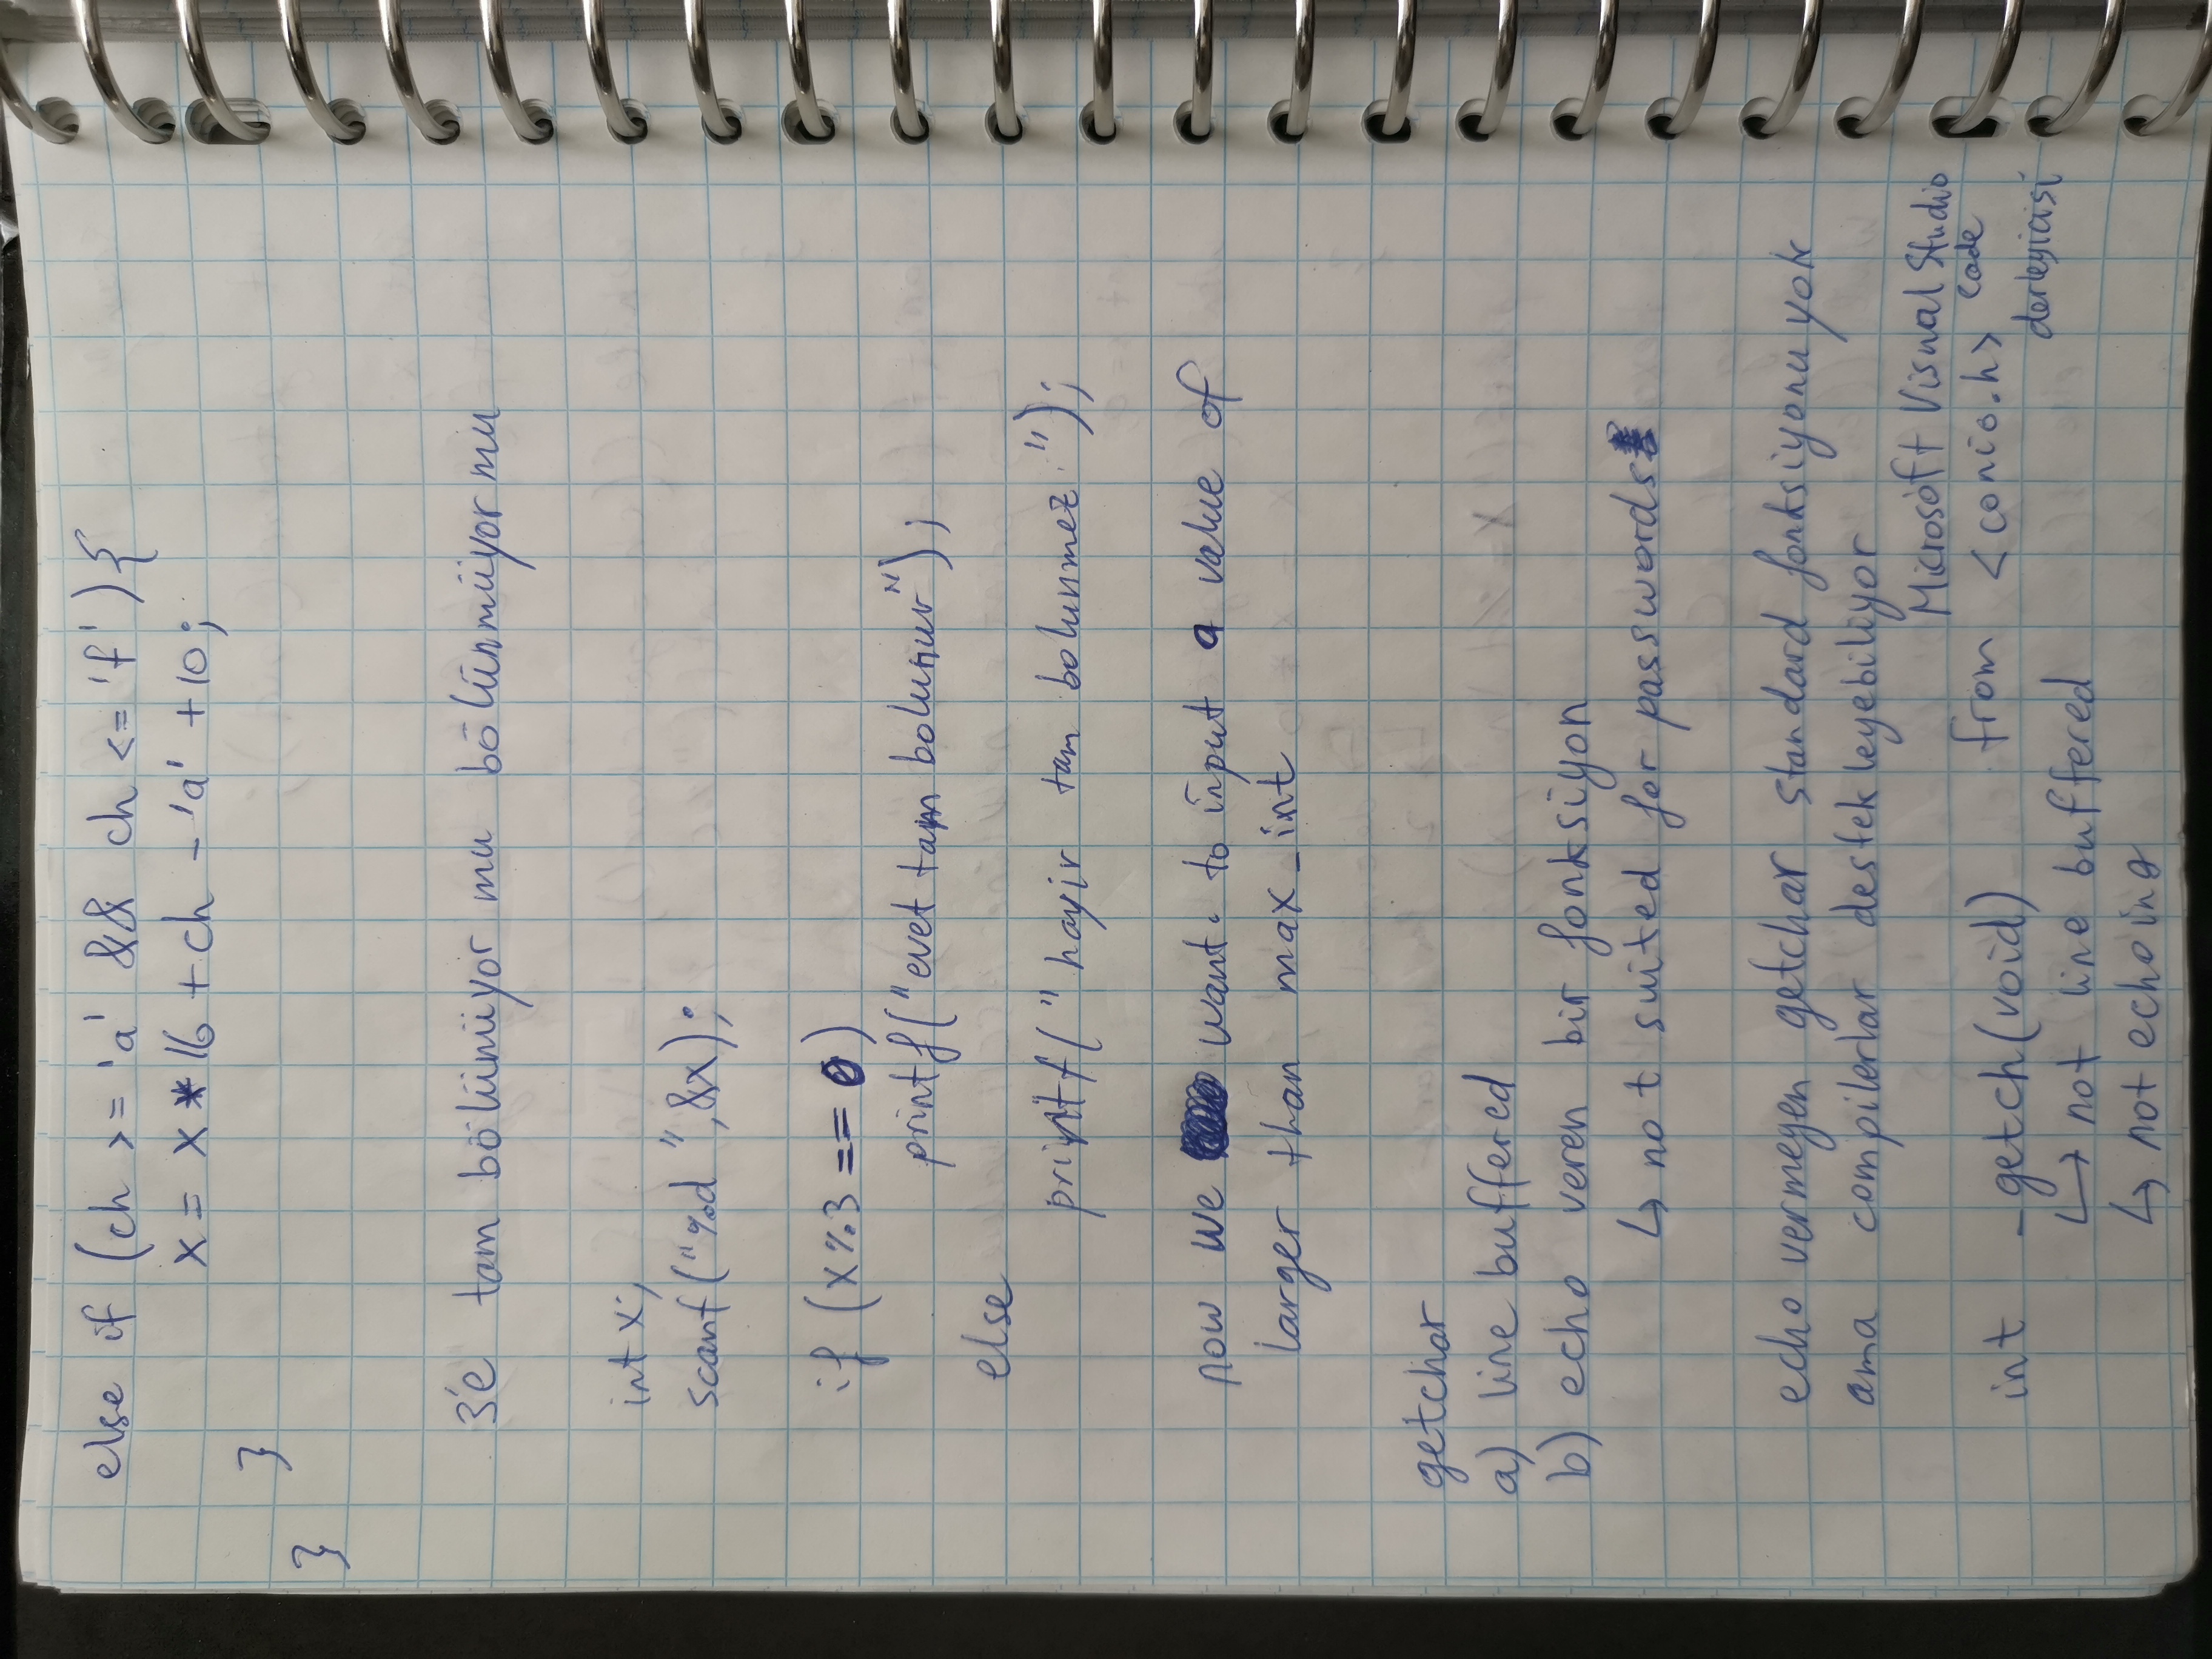 else if (ch >= 'a' && ch <= 'f'){
x = x * 16 + ch - 'a' + 10;
}
}
3'e tam bölünüyor mu bölünmüyor mu
int x;
scanf("%d ", &x);
if (x%3 == 0)
printf("evet tam bolunur");
else
printf(" hayir tam bolunmez ");
now we want to input a value of
larger than max_int
getchar
a) line buffered
b) echo veren bir fonksiyon
↳ not suited for passwords
echo vermeyen getchar standard fonksiyonu yok
ama compilerlar destekleyebiliyor
Microsoft Visual Studio
code
int _getch(void) from <conio.h>
derleyicisi
↳ not line buffered
↳ not echoing